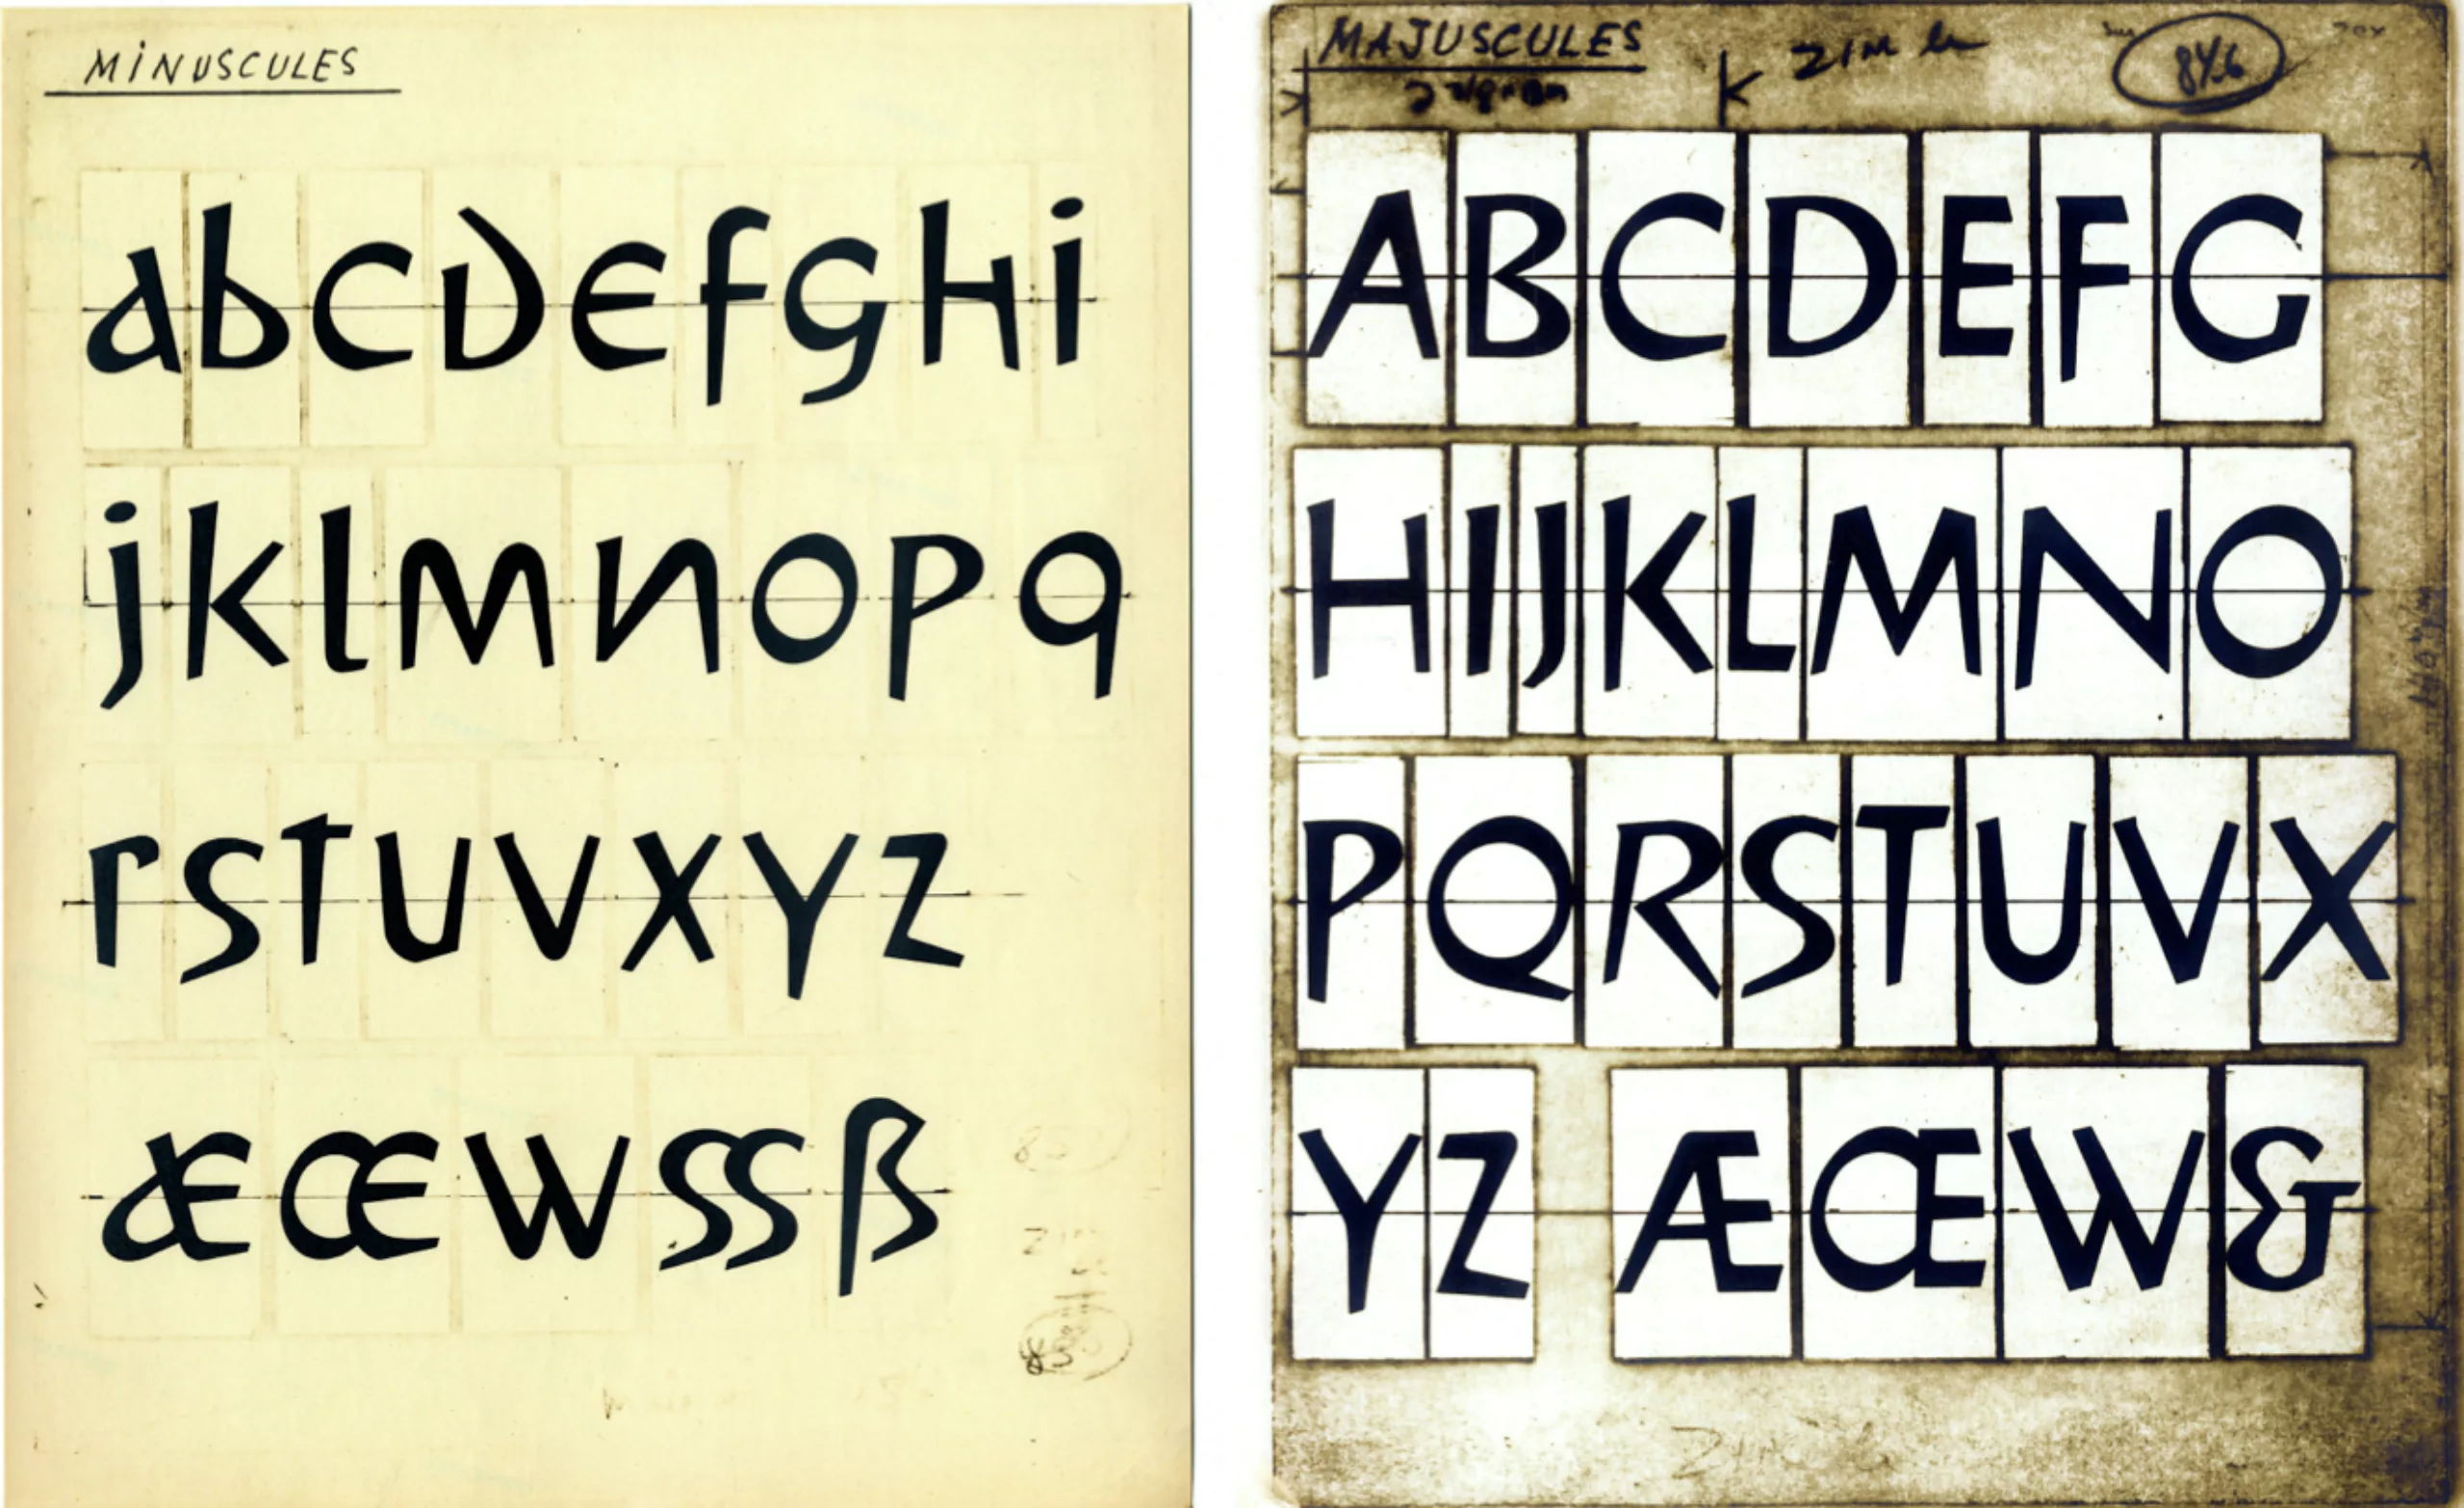 MiNUSCULES
abcdefghi
jklmnopq
rstuvxyz
æœwssß
MAJUSCULES
ABCDEFG
HIJKLMNO
PQRSTUVX
YZ ÆŒW&